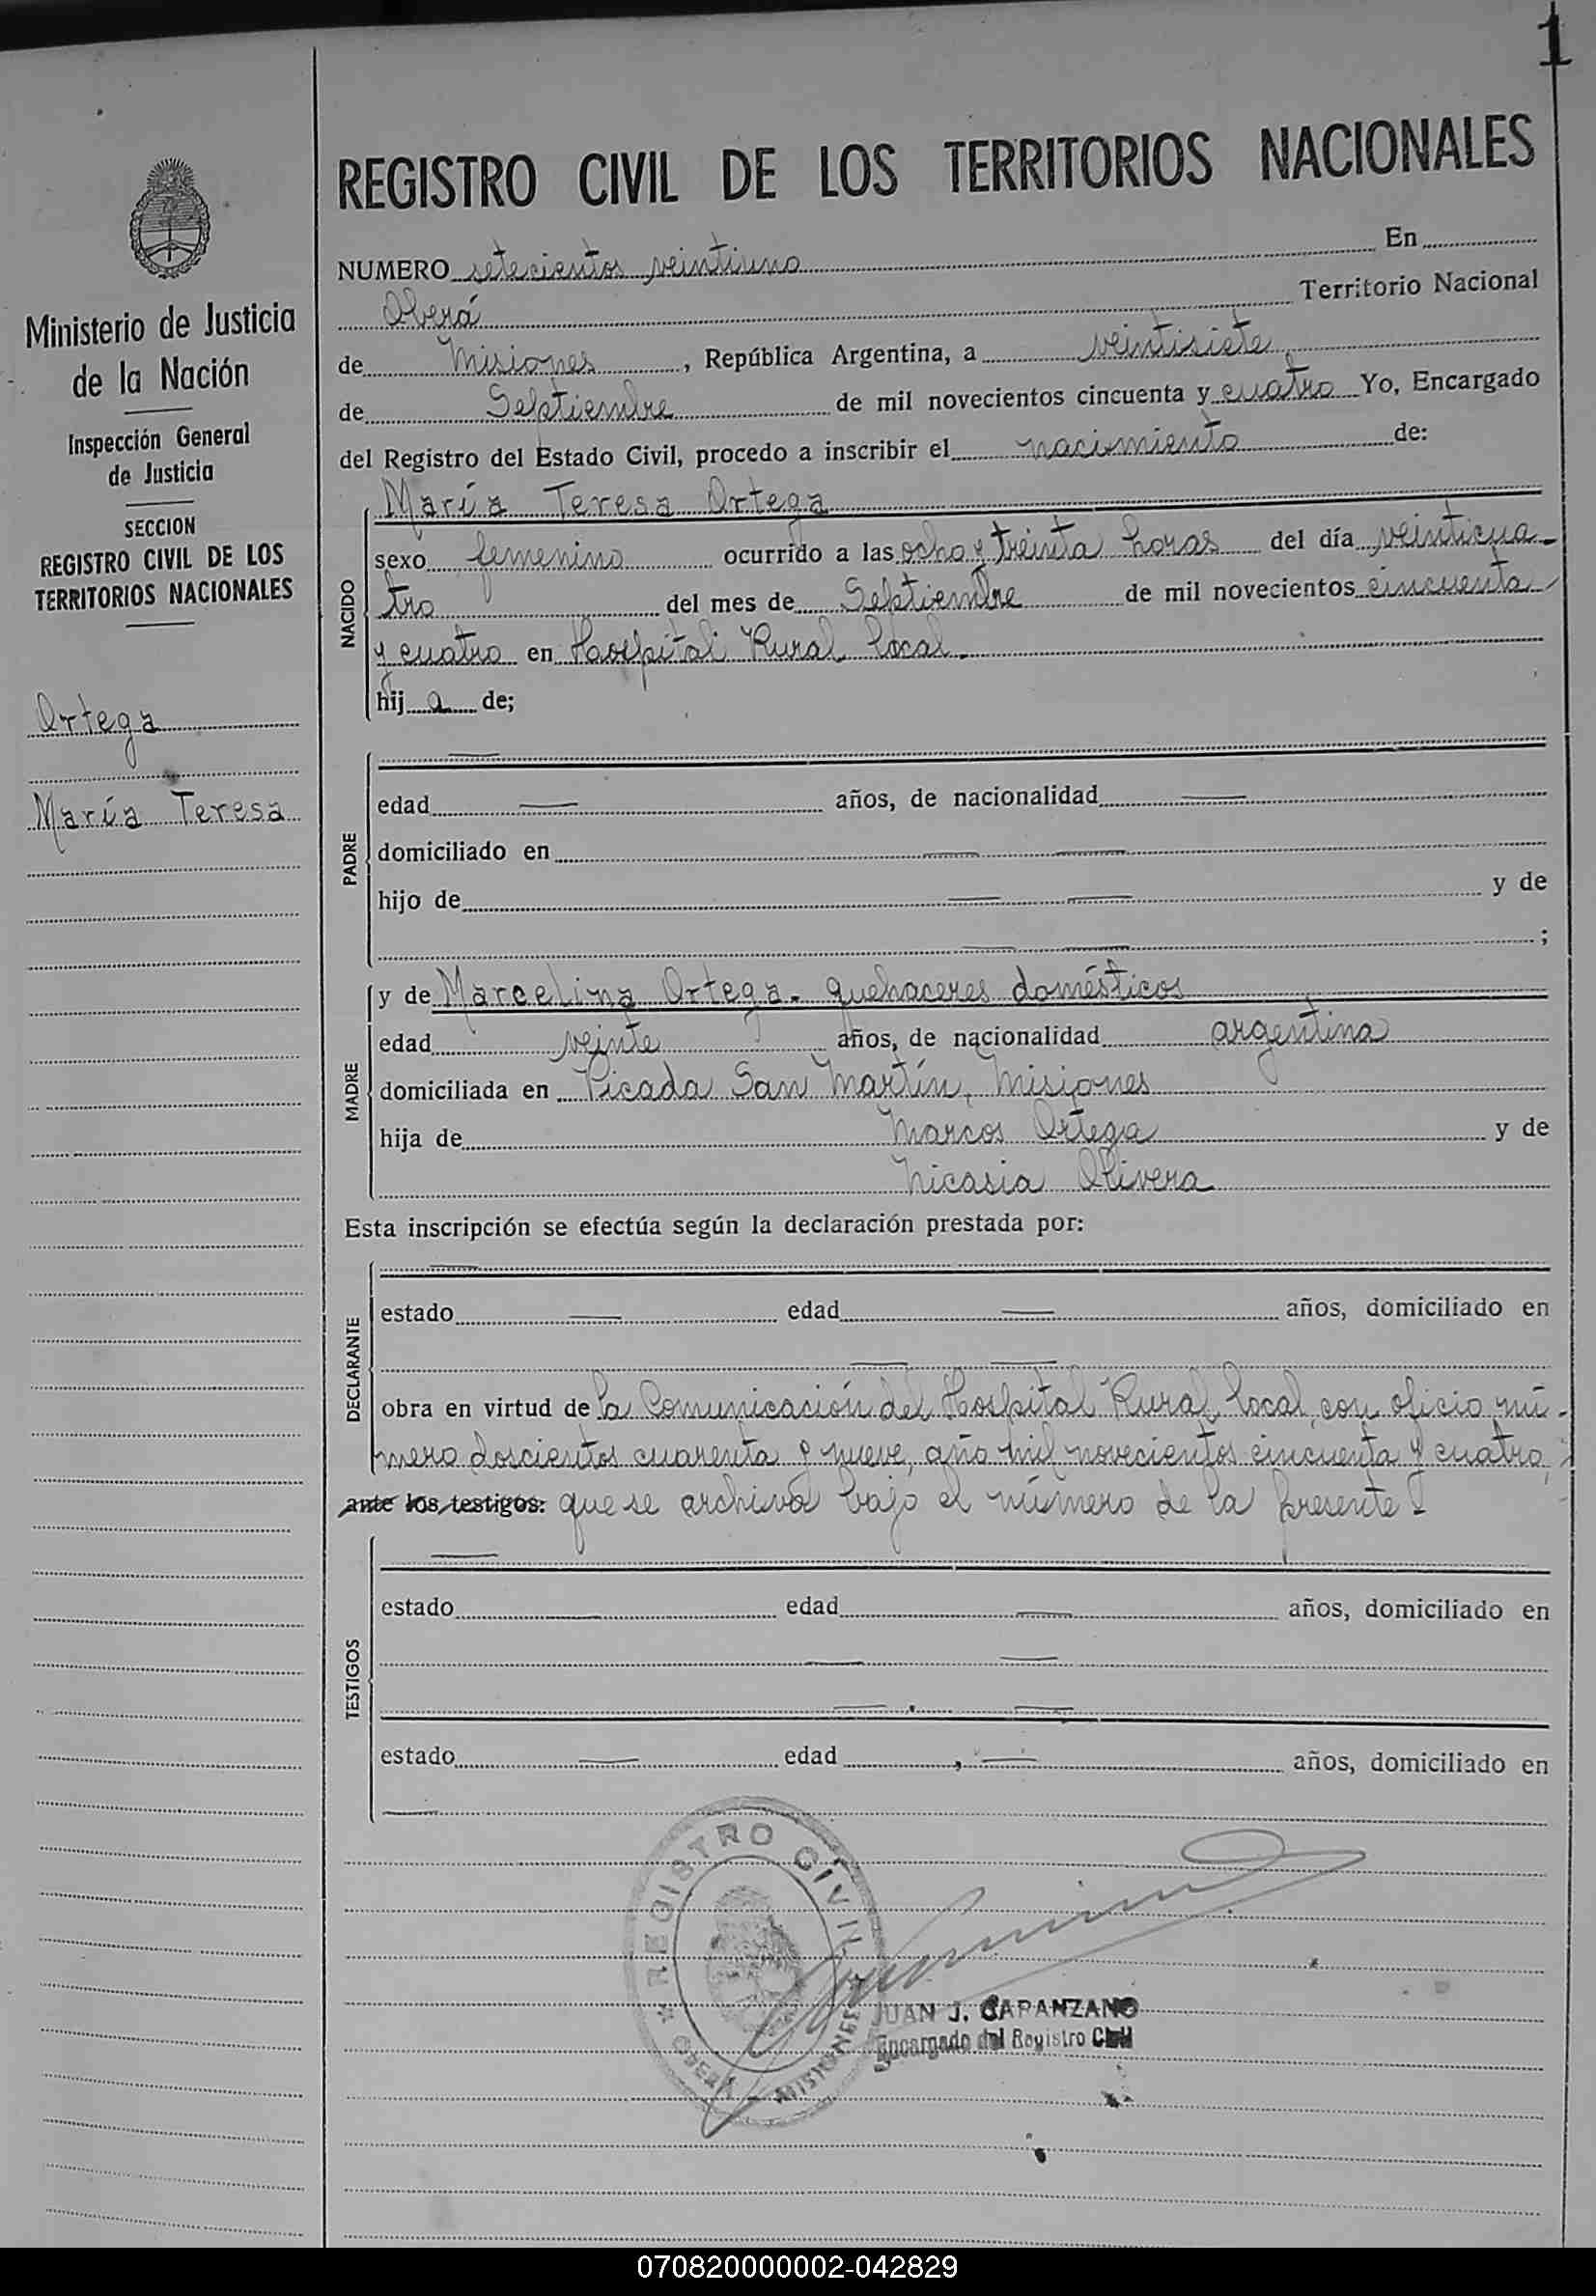 1
REGISTRO CIVIL DE LOS TERRITORIOS NACIONALES
Ministerio de Justicia
de la Nación
Inspección General
de Justicia
SECCION
REGISTRO CIVIL DE LOS
TERRITORIOS NACIONALES
Ortega
María Teresa
NUMERO setecientos veintiuno En
Oberá Territorio Nacional
de Misiones, República Argentina, a veintisiete
de Septiembre de mil novecientos cincuenta y cuatro Yo, Encargado
del Registro del Estado Civil, procedo a inscribir el nacimiento de:
NACIDO
María Teresa Ortega
sexo femenino ocurrido a las ocho y treinta horas del día veinticua-
tro del mes de Septiembre de mil novecientos cincuenta
y cuatro en Hospital Rural local.
hij a de;
PADRE
edad años, de nacionalidad
domiciliado en
hijo de y de
;
MADRE
y de Marcelina Ortega. quehaceres domésticos
edad veinte años, de nacionalidad argentina
domiciliada en Picada San Martín, Misiones
hija de Marcos Ortega y de
Nicasia Olivera
Esta inscripción se efectúa según la declaración prestada por:
DECLARANTE
estado edad años, domiciliado en
obra en virtud de la Comunicación del Hospital Rural local, con oficio nú-
mero doscientos cuarenta y nueve, año mil novecientos cincuenta y cuatro,
ante los testigos: que se archiva bajo el número de la presente
TESTIGOS
estado edad años, domiciliado en
estado edad años, domiciliado en
REGISTRO CIVIL
OBERA MISIONES
JUAN J. CAPANZANO
Encargado del Registro Civil
070820000002-042829